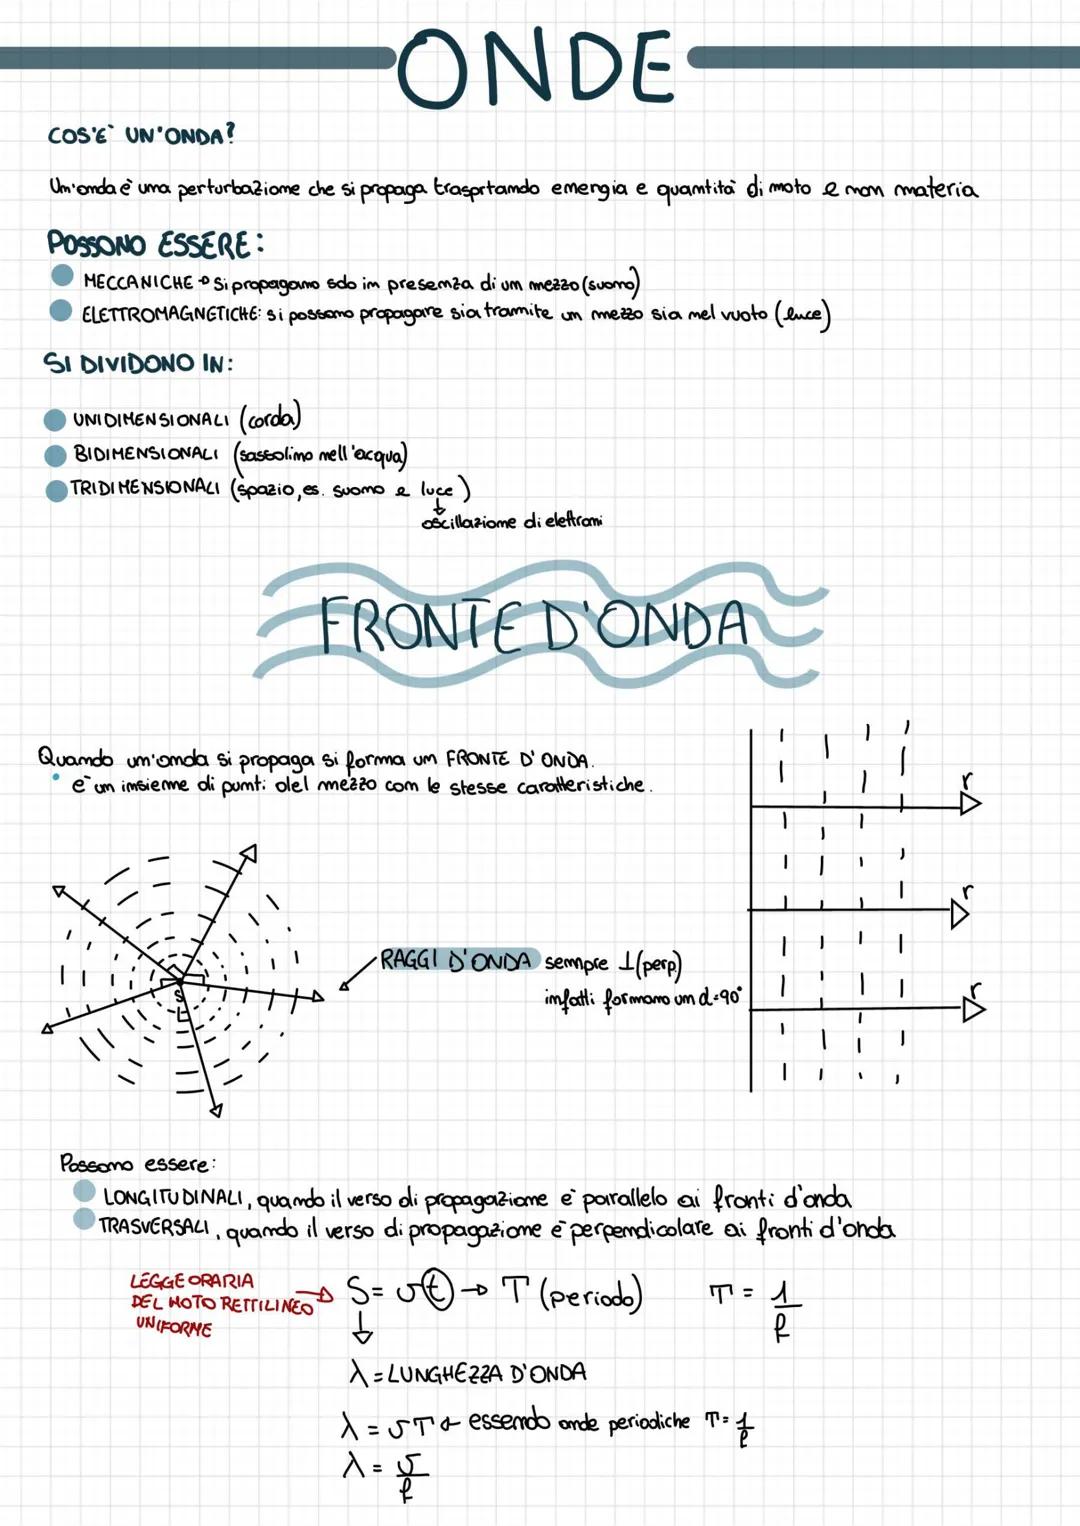 ONDE
COS'E` UN'ONDA?
Un'onda è una perturbazione che si propaga trasportando energia e quantità di moto e non materia
POSSONO ESSERE:
MECCANICHE → si propagano solo in presenza di un mezzo (suono)
ELETTROMAGNETICHE: si possono propagare sia tramite un mezzo sia nel vuoto (luce)
SI DIVIDONO IN:
UNIDIMENSIONALI (corda)
BIDIMENSIONALI (sassolino nell'acqua)
TRIDIMENSIONALI (spazio, es. suono e luce)
↓
oscillazione di elettroni
FRONTE D'ONDA
Quando un'onda si propaga si forma un FRONTE D'ONDA.
è un insieme di punti del mezzo con le stesse caratteristiche.
r
r
RAGGI D'ONDA sempre ⊥ (perp.)
infatti formano un α=90°
r
S
Possono essere:
LONGITUDINALI, quando il verso di propagazione è parallelo ai fronti d'onda
TRASVERSALI, quando il verso di propagazione è perpendicolare ai fronti d'onda
LEGGE ORARIA
DEL MOTO RETTILINEO
UNIFORME
→ S = v t → T (periodo) T = 1/f
↓
λ = LUNGHEZZA D'ONDA
λ = vT ← essendo onde periodiche T = 1/f
λ = v/f